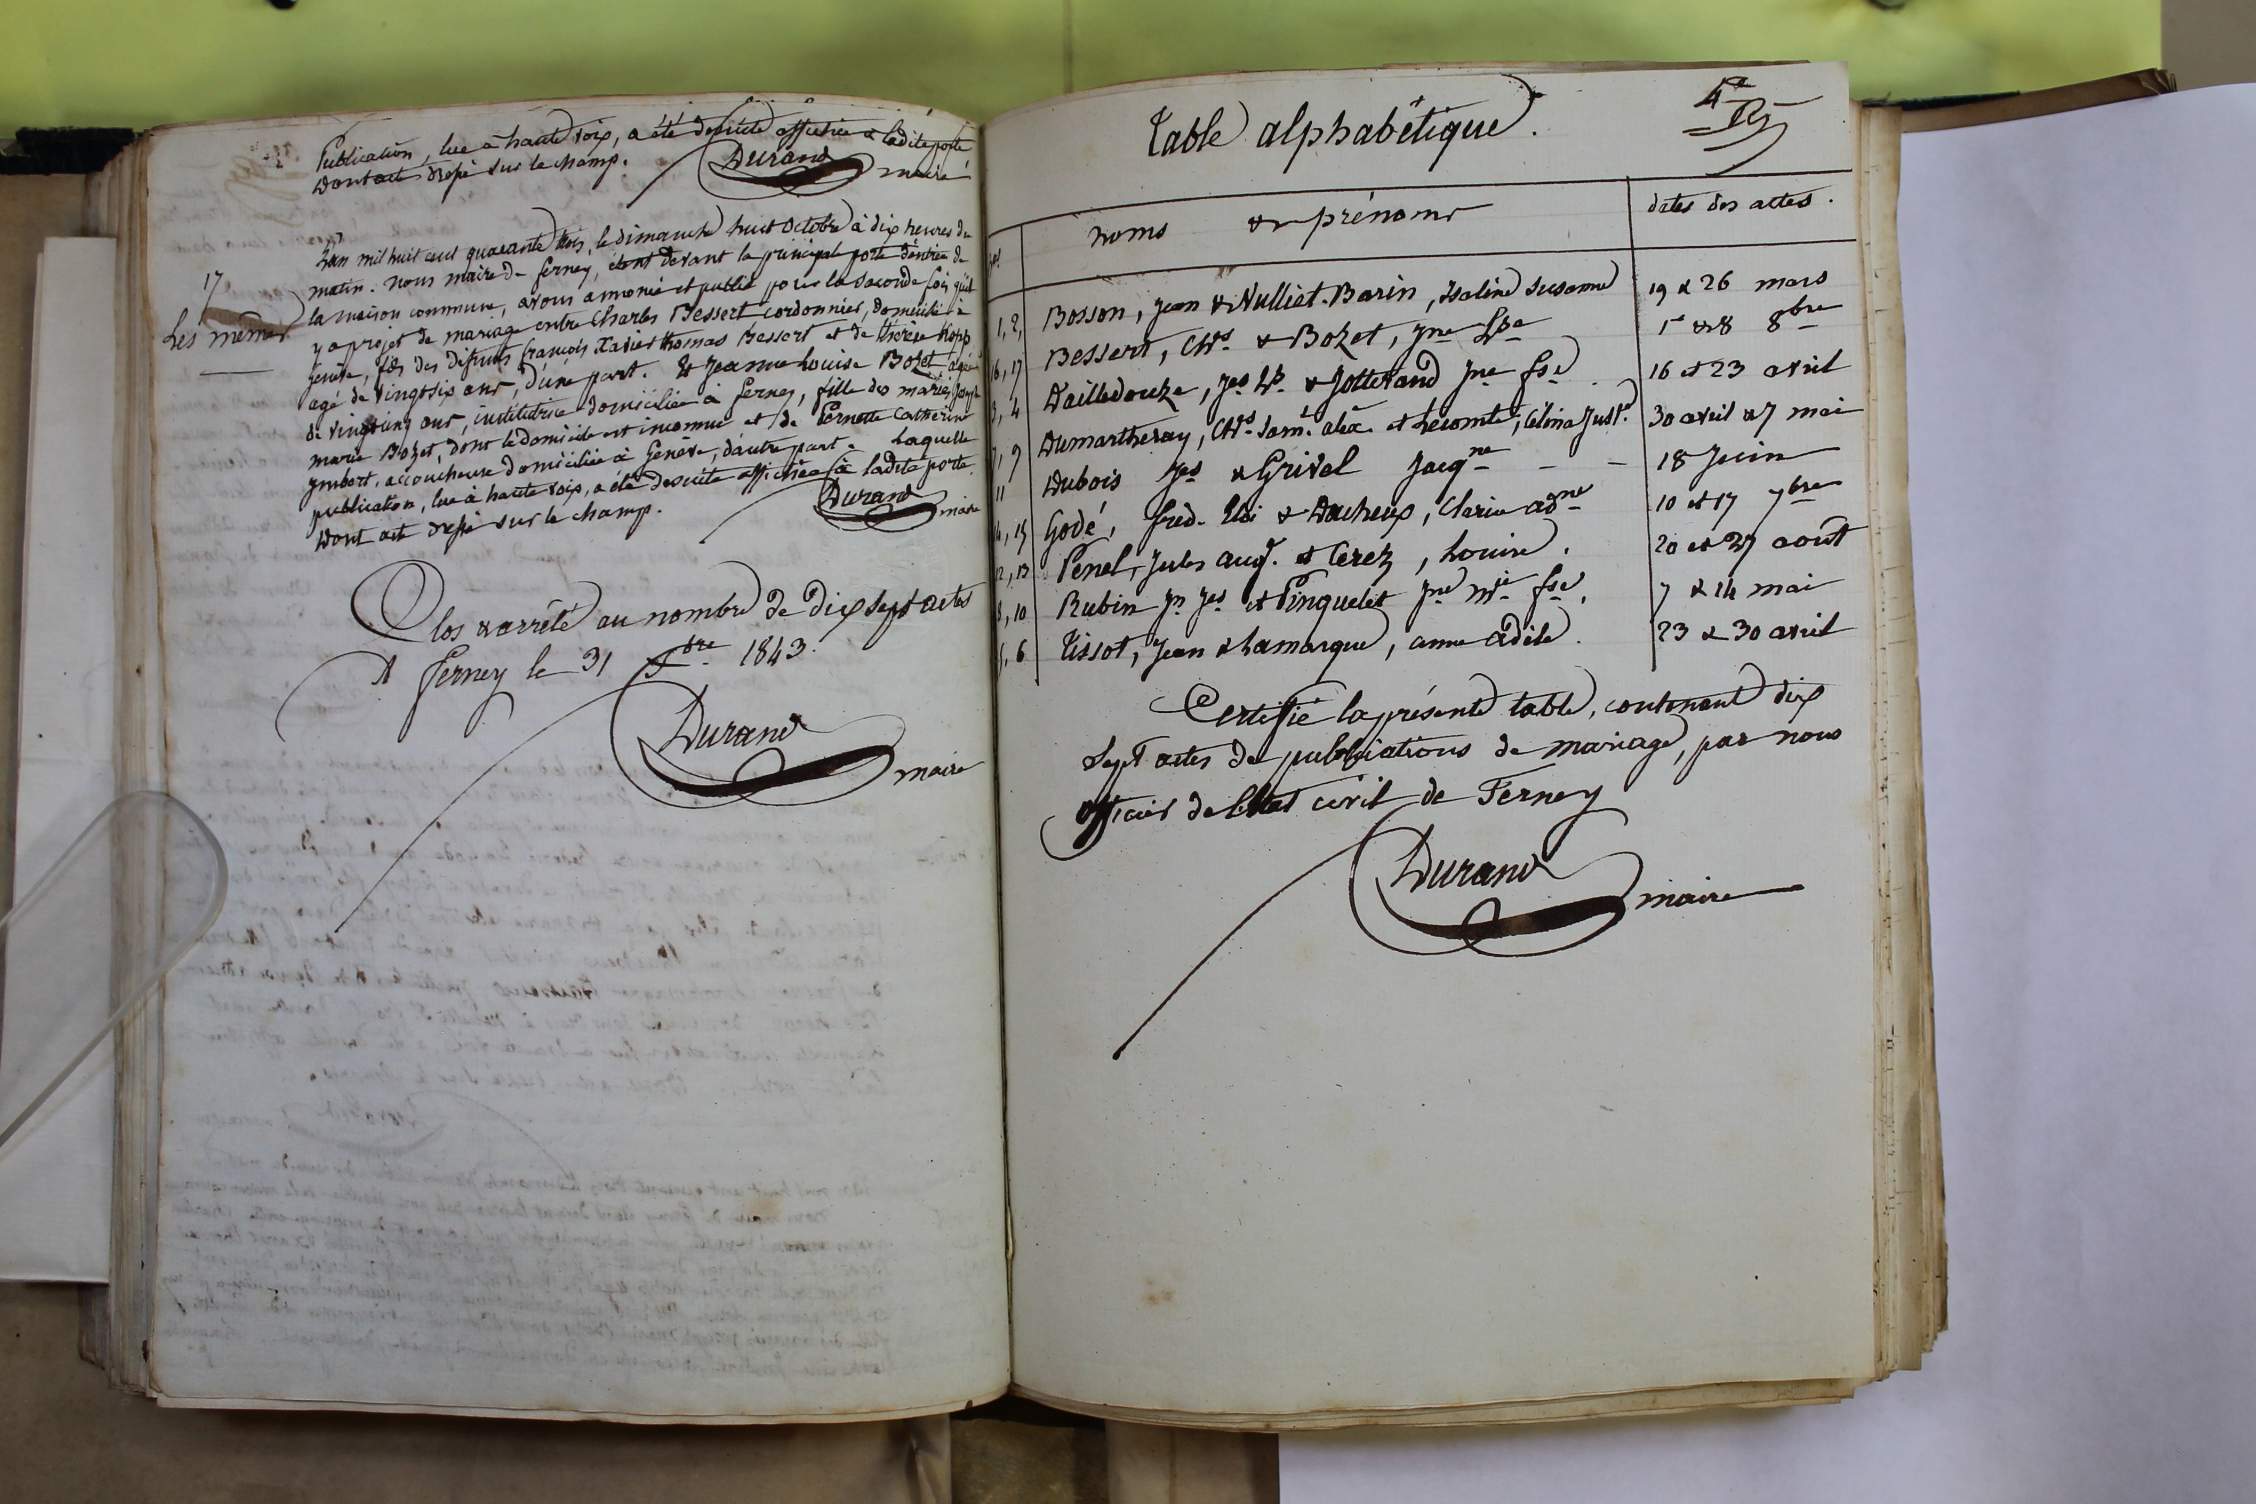 Publication, lue à haute voix, a été de suite affichée à ladite porte
Dont acte dressé sur le champ.
Durand maire
17
Les mêmes
L'an mil huit cent quarante trois, le dimanche huit Octobre à dix heures du
matin. Nous maire de Ferney, étant devant la principale porte d'entrée de
la maison commune, avons annoncé et publié pour la seconde fois qu'il
y a projet de mariage entre Charles Bessert cordonnier, domicilié à
Genève, fils des défunts François Xavier thomas Bessert et de thérèse
agé de vingt six ans, d'une part. Et Jeanne Louise Bozet agée
de vingt cinq ans, institutrice domiciliée à Ferney, fille des mariés Joseph
marie Bozet, dont le domicile est inconnu et de Pernette Catherine
ymbert, accoucheuse domiciliée à Genève, d'autre part. Laquelle
publication, lue à haute voix, a été de suite affichée à ladite porte.
Dont acte dressé sur le champ.
Durand maire
Clos & arrêté au nombre de dix sept actes
A Ferney le 31 Xbre 1843.
Durand
maire
Table alphabétique.
4e
noms & prénoms
dates des actes.
1, 2, Bosson, Jean & Nulliet-Barin, Isaline Susanne 19 & 26 mars
16, 17 Bessert, Chs & Bozet, Jne Lse 1er & 8 8bre
3, 4 Dailledouze, Jes Ls & Jotterand Jne fse 16 et 23 avril
7, 9 Dumartheray, Chs Saml alex. et Lecomte, Célina Juste 30 avril & 7 mai
11 Dubois Jes & Grivel Jacqne - - 18 Juin
14, 15 Godé, fred. Eloi & Dacheux, Clarice adne 10 et 17 7bre
12, 13 Penel, Jules aug. et Cerez, Louise. 20 et 27 août
8, 10 Rubin Jn Jes et Pinquelet Jne Mie fse. 7 & 14 mai
5, 6 Tissot, Jean & Lamarque, anne adèle. 23 & 30 avril
Certifié la présente table, contenant dix
sept actes de publications de mariage, par nous
officier de l'état civil de Ferney
Durand
maire